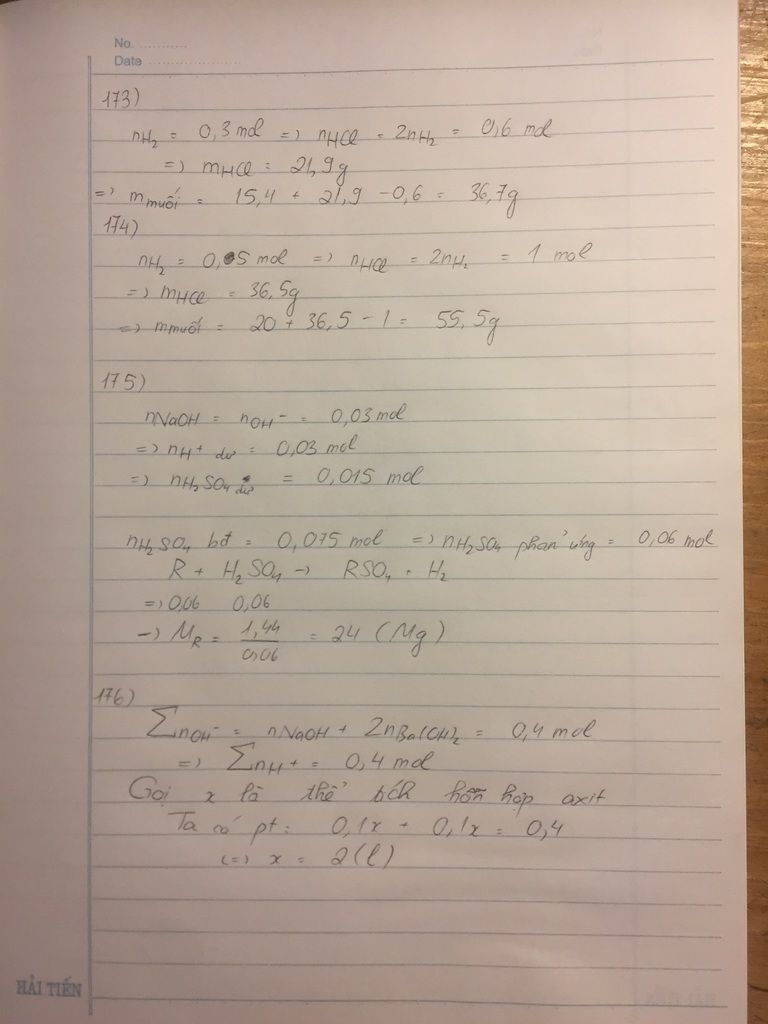 No. ............
Date ......................
173)
nH₂ = 0,3 mol => nHCl = 2nH₂ = 0,6 mol
=> mHCl = 21,9g
=> mmuối = 15,4 + 21,9 - 0,6 = 36,7g
174)
nH₂ = 0,5 mol => nHCl = 2nH₂ = 1 mol
=> mHCl = 36,5g
=> mmuối = 20 + 36,5 - 1 = 55,5g
175)
nNaOH = nOH⁻ = 0,03 mol
=> nH⁺ dư = 0,03 mol
=> nH₂SO₄ dư = 0,015 mol
nH₂SO₄ bđ = 0,075 mol => nH₂SO₄ phản ứng = 0,06 mol
R + H₂SO₄ -> RSO₄ + H₂
=> 0,06 0,06
-> MR = 1,44/0,06 = 24 (Mg)
176)
∑nOH⁻ = nNaOH + 2nBa(OH)₂ = 0,4 mol
=> ∑nH⁺ = 0,4 mol
Gọi x là thể tích hỗn hợp axit
Ta có pt: 0,1x + 0,1x = 0,4
<=> x = 2(l)
HẢI TIẾN